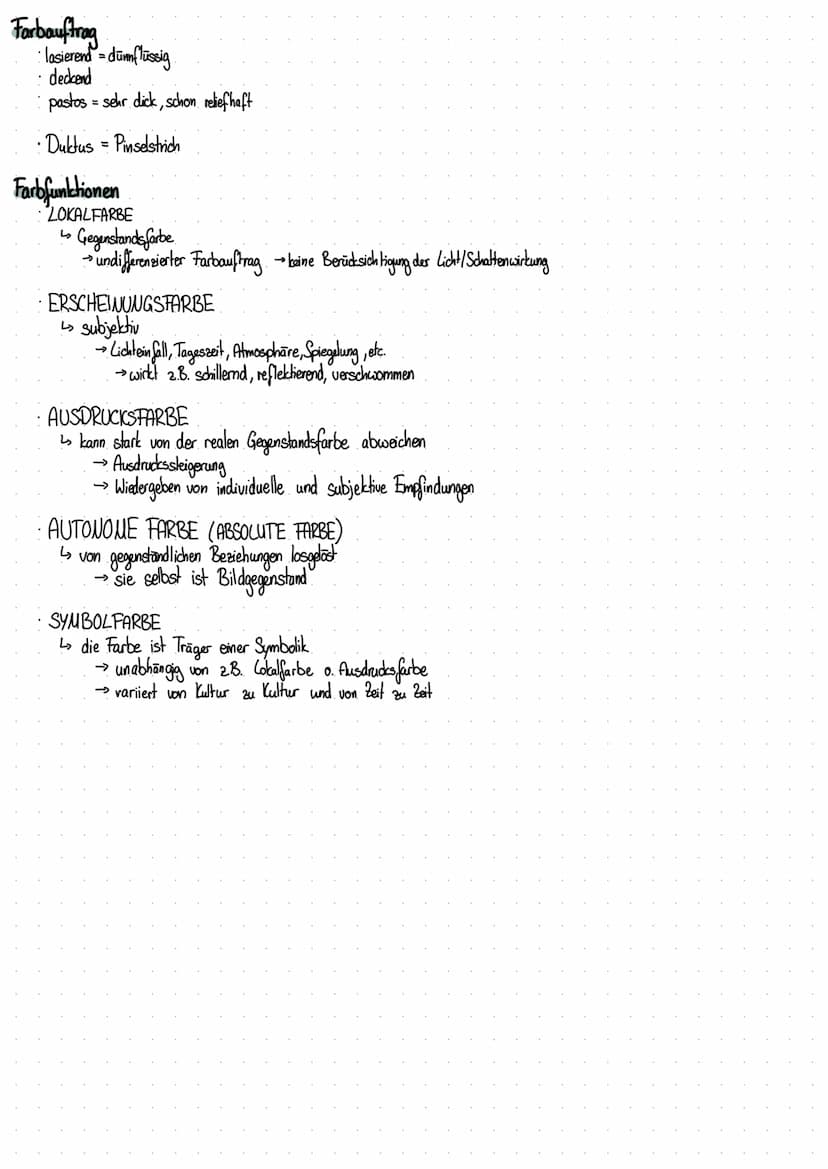 Farbauftrag
· lasierend = dünnflüssig
· deckend
· pastos = sehr dick, schon reliefhaft
· Duktus = Pinselstrich
Farbfunktionen
· LOKALFARBE
↳ Gegenstandsfarbe
→ undifferenzierter Farbauftrag → keine Berücksichtigung der Licht/Schattenwirkung
· ERSCHEINUNGSFARBE
↳ subjektiv
→ Lichteinfall, Tageszeit, Atmosphäre, Spiegelung, etc.
→ wirkt z.B. schillernd, reflektierend, verschwommen
· AUSDRUCKSFARBE
↳ kann stark von der realen Gegenstandsfarbe abweichen
→ Ausdruckssteigerung
→ Wiedergeben von individuelle und subjektive Empfindungen
· AUTONOME FARBE (ABSOLUTE FARBE)
↳ von gegenständlichen Beziehungen losgelöst
→ sie selbst ist Bildgegenstand
· SYMBOLFARBE
↳ die Farbe ist Träger einer Symbolik
→ unabhängig von z.B. Lokalfarbe o. Ausdrucksfarbe
→ variiert von Kultur zu Kultur und von Zeit zu Zeit